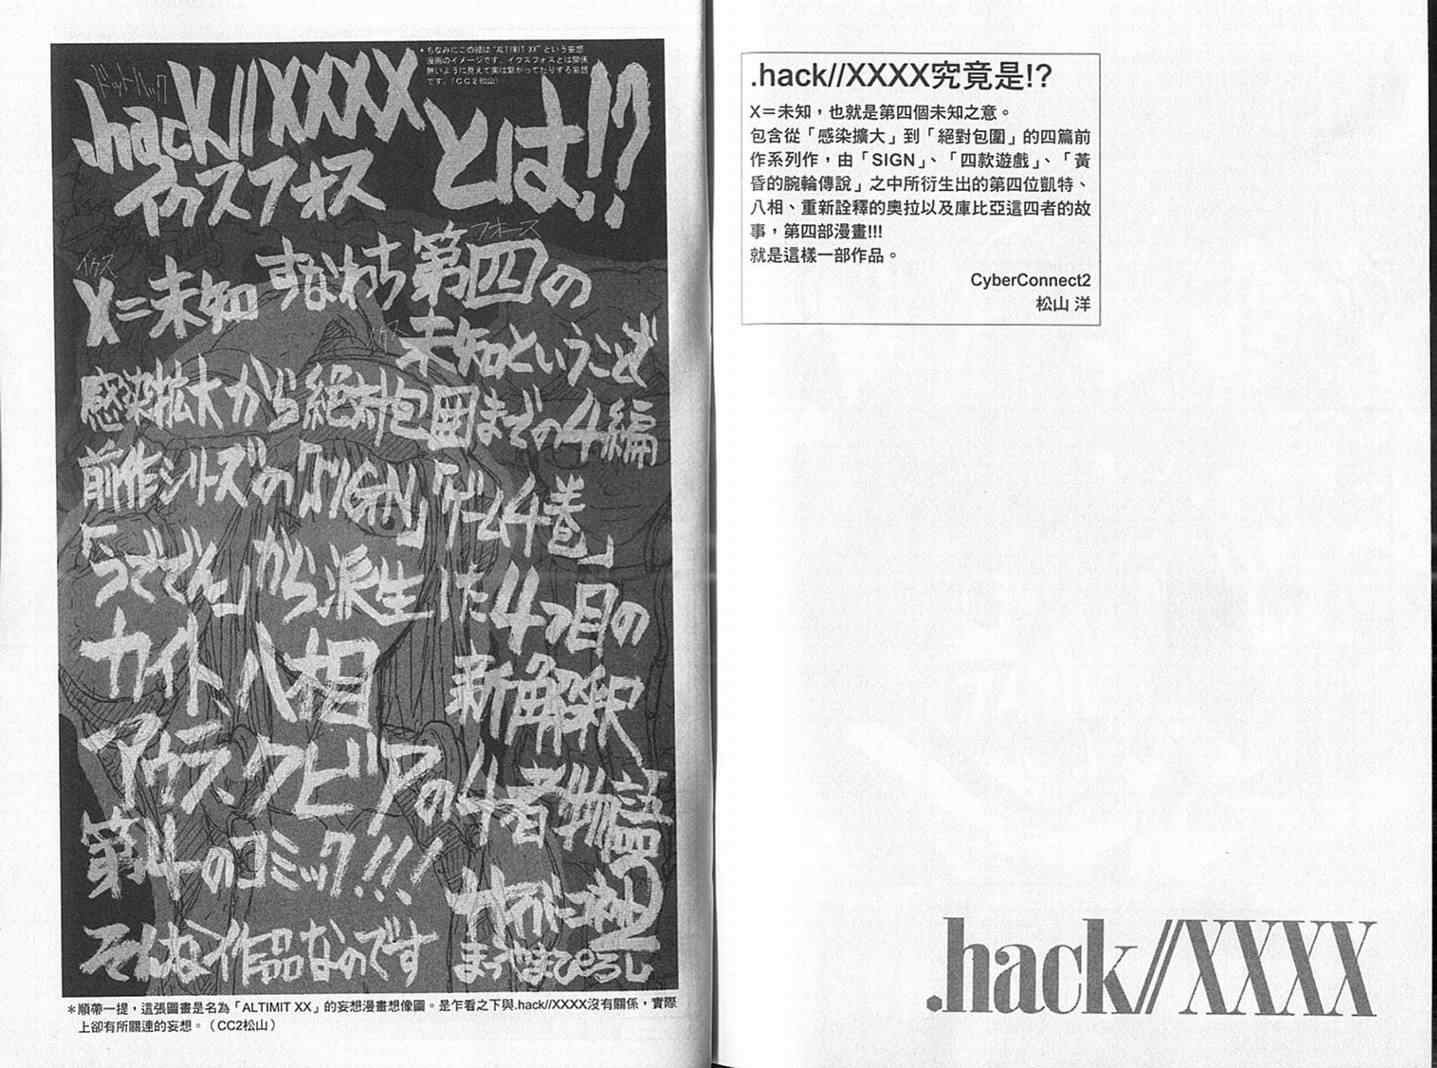 ドットハック
.hack//XXXX とは!?
イクスフォス
*ちなみにこの絵は“ALTIMIT XX”という妄想
漫画のイメージです。イクスフォスとは関係
無いように見えて実は繋がってたりする妄想
です。(CC2松山)
イクス フォース
X=未知 すなわち第四の
イクス
未知ということだ
感染拡大から絶対包囲までの4編
前作シリーズの「SIGN」「ゲーム4巻」
「うででん」から派生した4つ目の
カイト、八相 新解釈
アウラ、クビアの4者物語
第4のコミック!!!
そんな作品なのです
まつやまひろし
*順帶一提，這張圖畫是名為「ALTIMIT XX」的妄想漫畫想像圖。是乍看之下與.hack//XXXX沒有關係，實際
上卻有所關連的妄想。（CC2松山）
.hack//XXXX究竟是!?
X＝未知，也就是第四個未知之意。
包含從「感染擴大」到「絕對包圍」的四篇前
作系列作，由「SIGN」、「四款遊戲」、「黃
昏的腕輪傳說」之中所衍生出的第四位凱特、
八相、重新詮釋的奧拉以及庫比亞這四者的故
事，第四部漫畫!!!
就是這樣一部作品。
CyberConnect2
松山 洋
.hack//XXXX